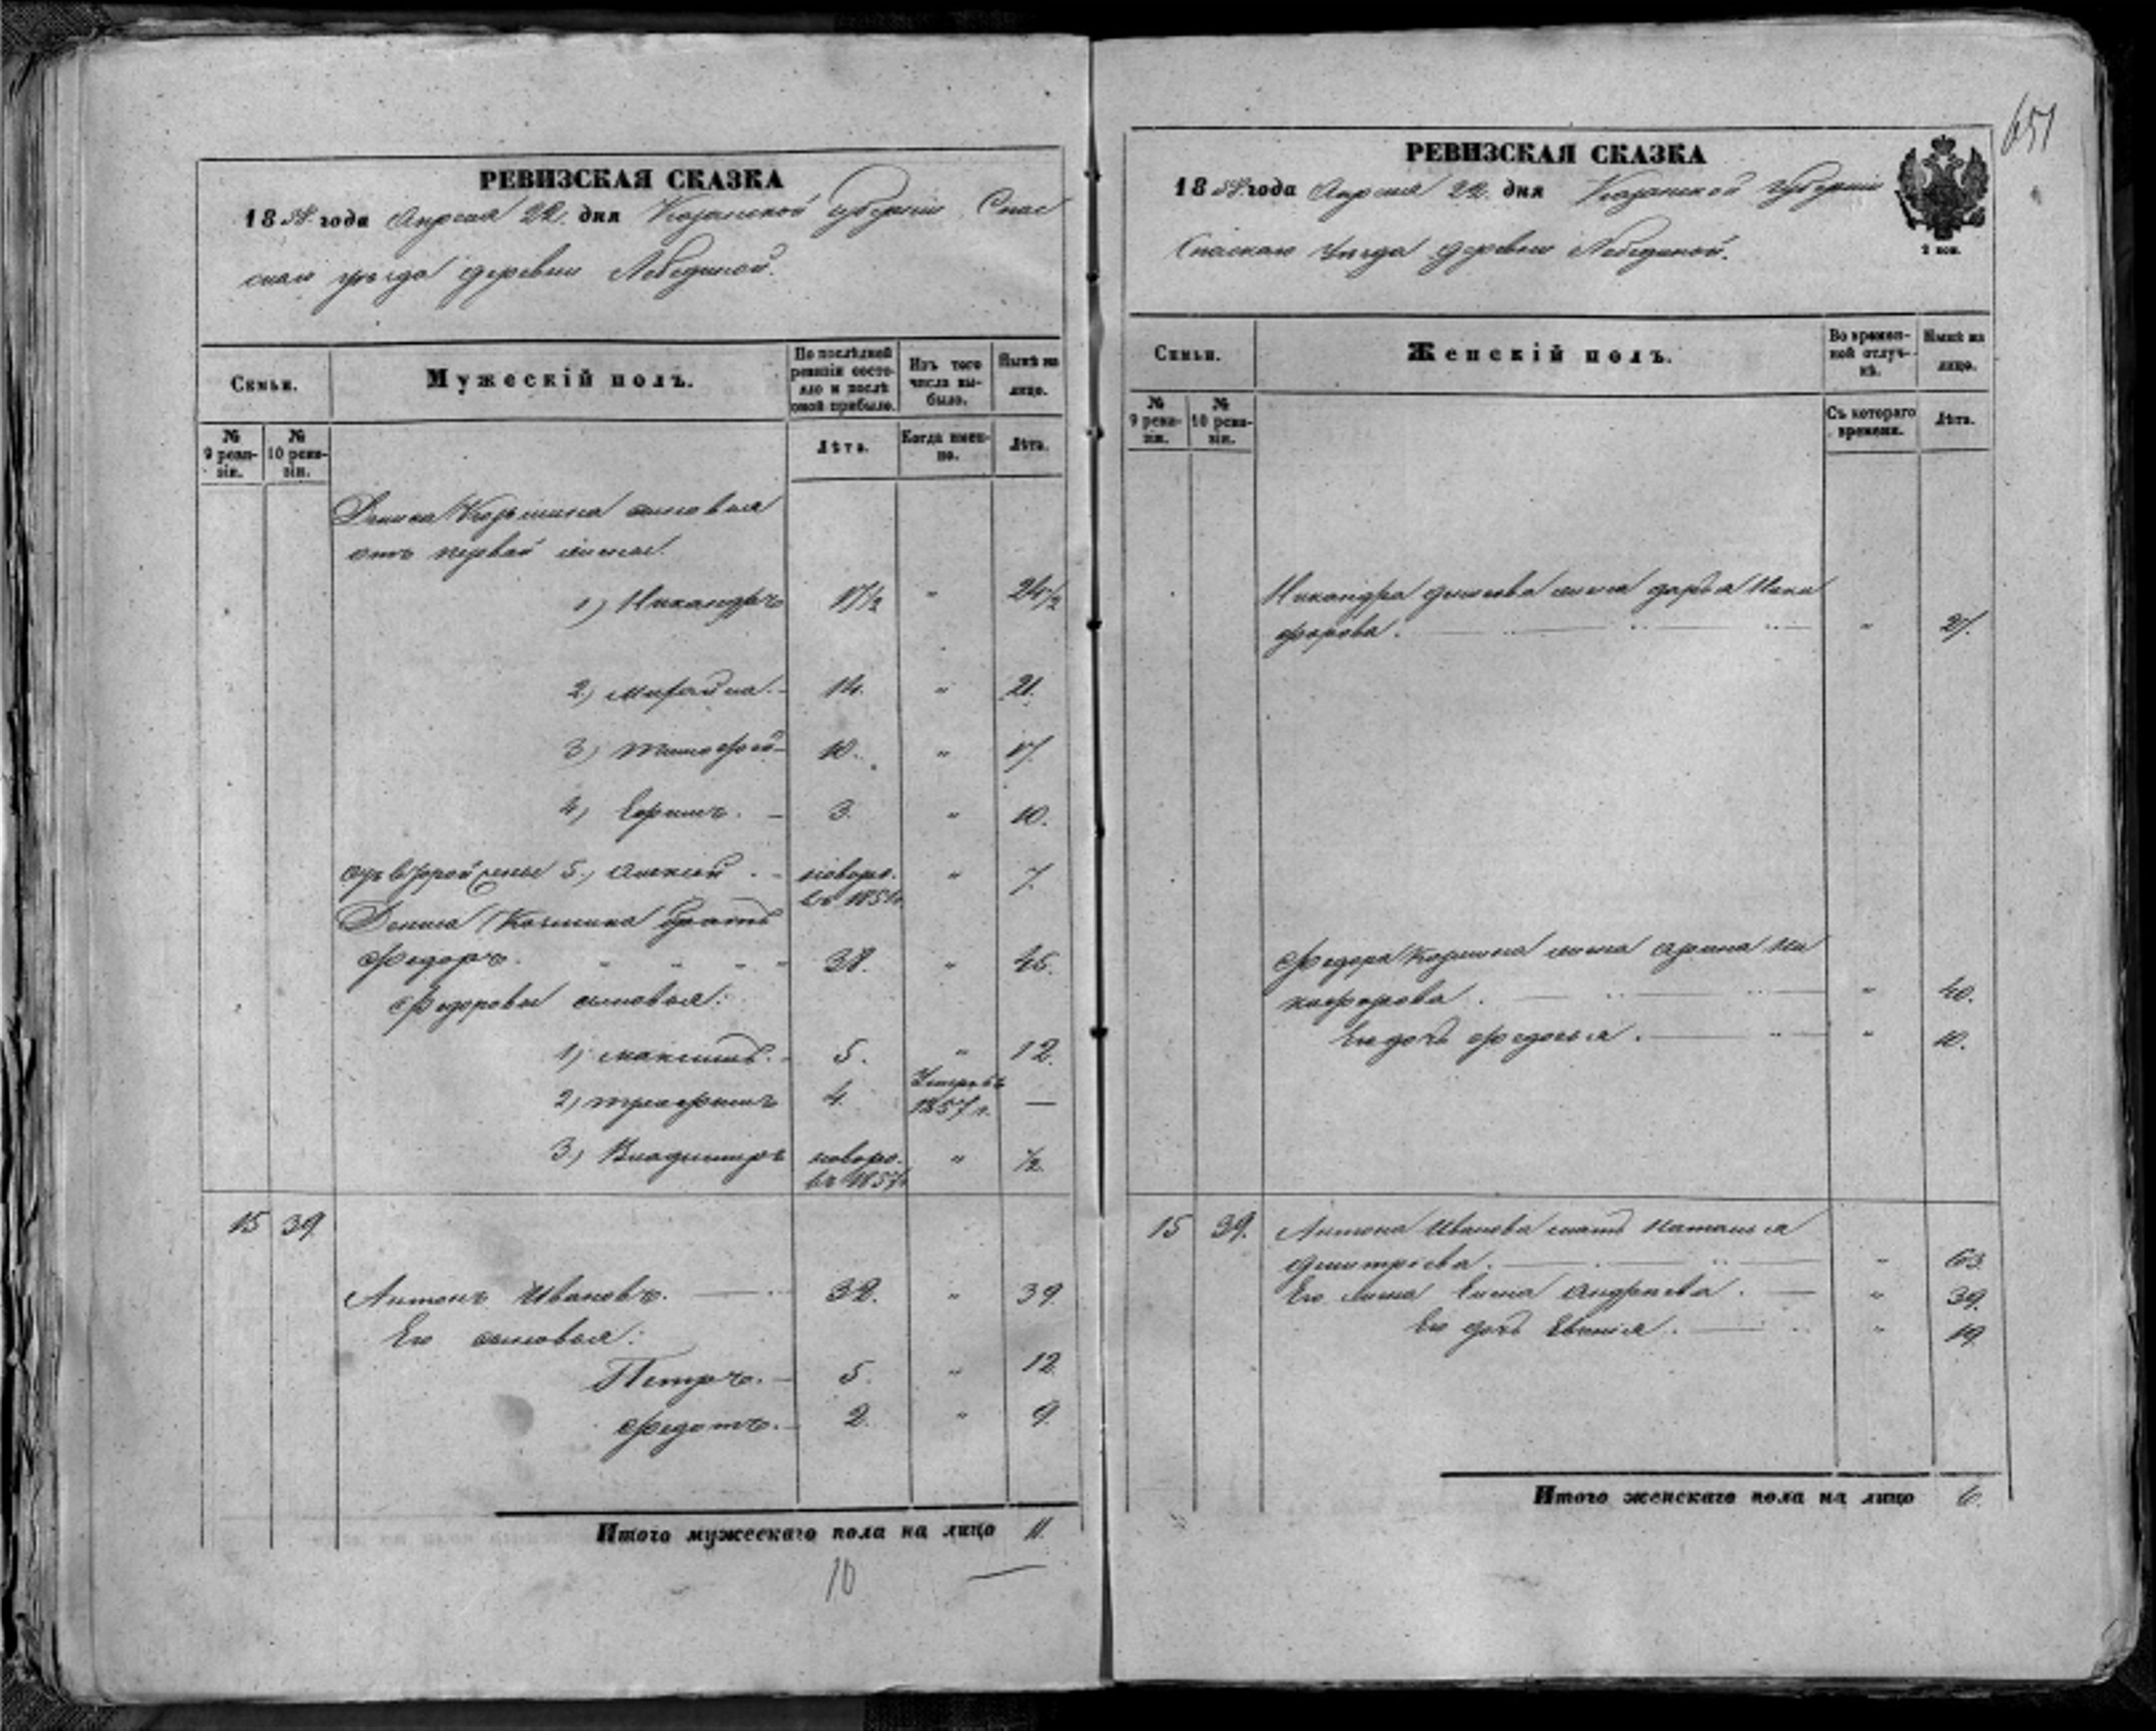 651
РЕВИЗСКАЯ СКАЗКА
1858 года Апреля 22 дня Казанской губернии Спас
скаго уѣзда деревни Лебединой.
Семьи.
Мужескій полъ.
По послѣдней ревизіи состояло и послѣ оной прибыло.
Изъ того числа выбыло.
Нынѣ на лицо.
№ 9 ревизіи.
№ 10 ревизіи.
Лѣта.
Когда именно.
Лѣта.
Дениса Козьмина сыновья
отъ первой жены.
1) Никандръ 17½ " 24½
2.) Михайла. 14. " 21.
3) Тимофей 10. " 17.
4) Ефимъ. 3. " 10.
отъ второй жены 5.) Алексѣй. новоро. " 7.
въ 1851г
Дениса Козмина братъ
Федоръ. 38. " 45.
Федоровы сыновья:
1) Максимъ. 5. " 12.
2) Трофимъ 4. Умеръ въ 1857 г. —
3.) Владимиръ новоро. въ 1857г " ½.
15 39.
Антонъ Ивановъ. 32. " 39.
Его сыновья:
Петръ. 5. " 12.
Федотъ. 2. " 9.
Итого мужескаго пола на лицо 11.
10
РЕВИЗСКАЯ СКАЗКА
1858 года Апреля 22. дня Казанской губерніи
2 коп.
Спаскаго Уѣзда деревни Лебединой.
Семьи.
Женскій полъ.
Во временной отлучкѣ.
Нынѣ на лицо.
№ 9 ревизіи.
№ 10 ревизіи.
Съ котораго времени.
Лѣта.
Никандра Денисова жена Дарья Ники
форова. " 27.
Федора Козмина жена Арина Ни
кифорова. " 40.
Ея дочь Федосья. " 10.
15 39. Антона Иванова мать Наталья
Дмитріева. " 63
Его жена Андреева. " 39.
Его дочь Евгенія. " 19.
Итого женскаго пола на лицо 6.